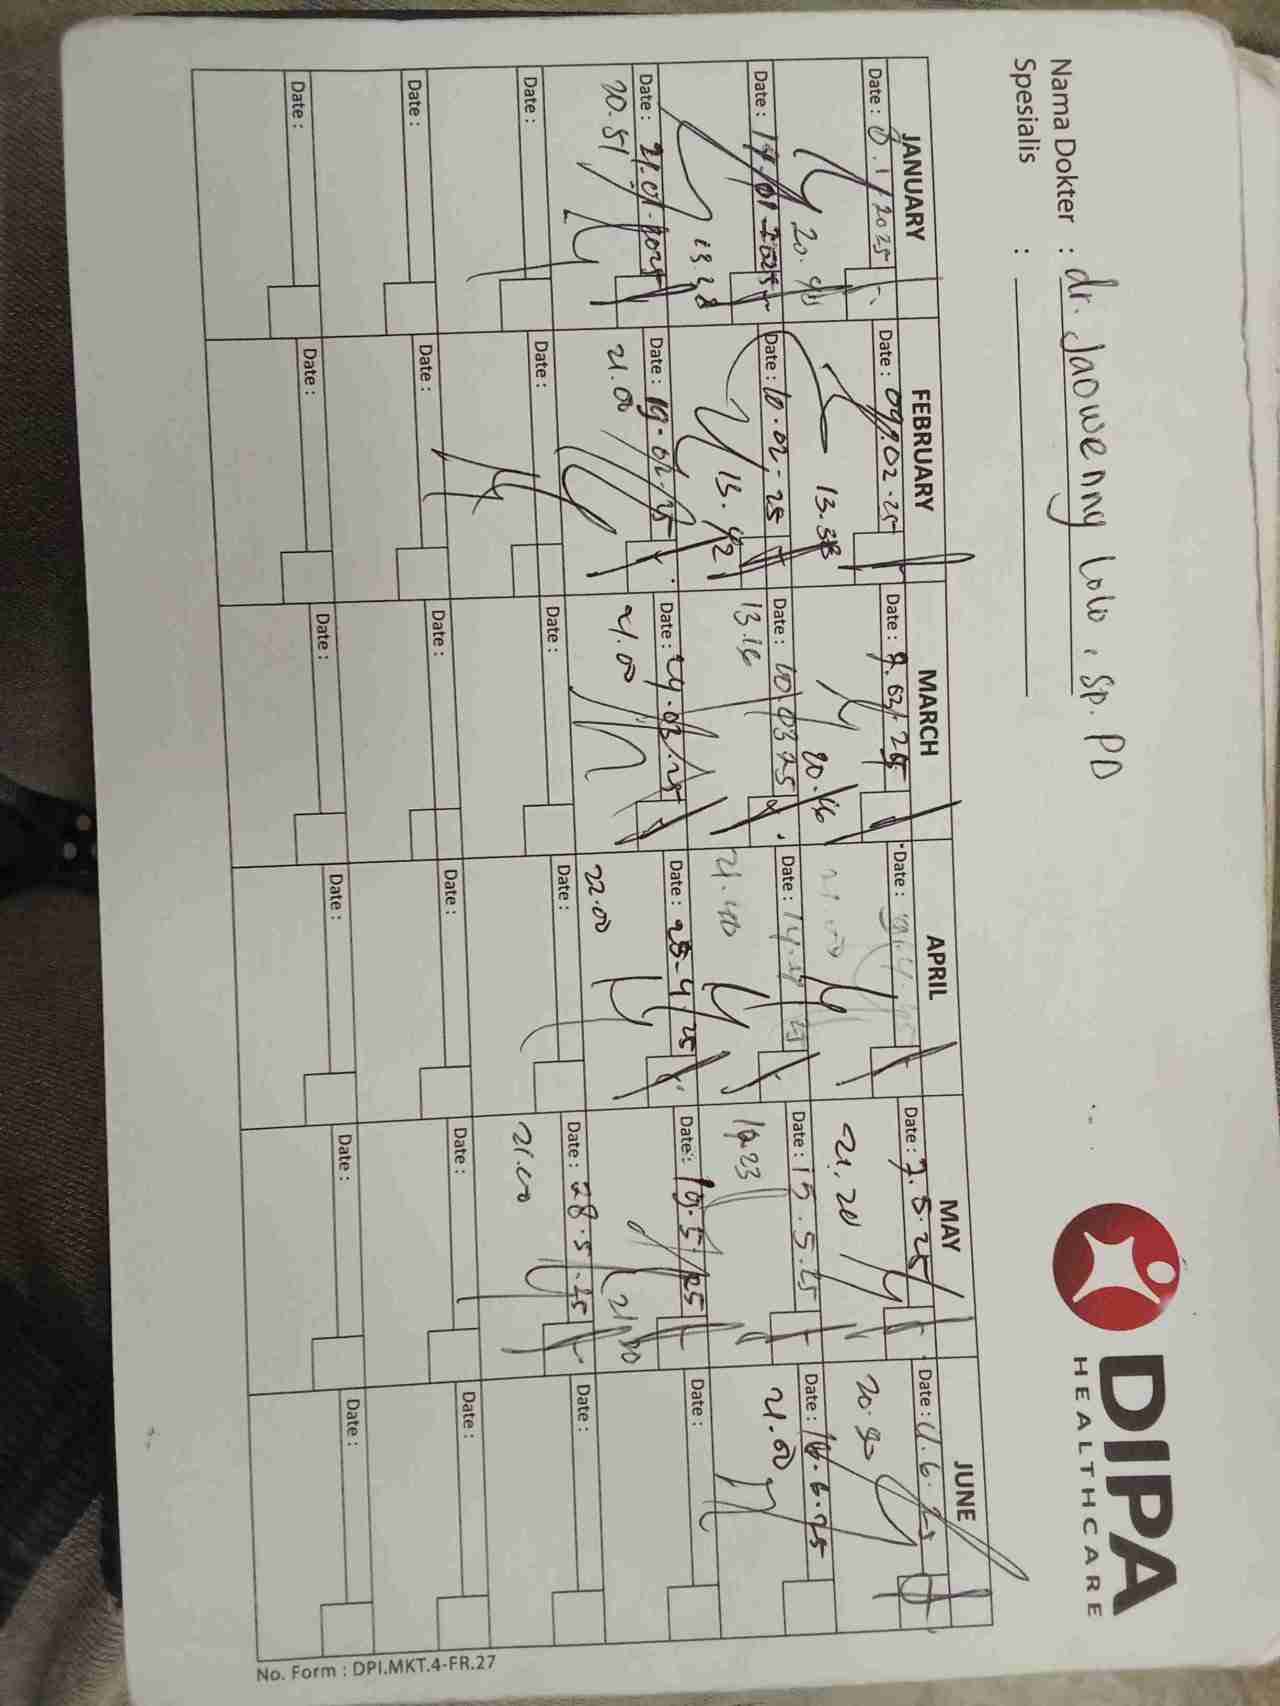 Nama Dokter : dr. Jaowenny Lolo, Sp. PD
Spesialis :
DIPA
HEALTHCARE
JANUARY FEBRUARY MARCH APRIL MAY JUNE
Date : 8.1/2025 Date : 09.02.25 Date : 9.03.25 Date : Date : 7.5.25 Date : 11.6.25
13.38 20.46 21.00 21.20
Date : 14.01.2025 Date : 10.02.25 Date : 10.03.25 Date : 14.4/25 Date : 15.5.25 Date : 16.6.25
13.28 13.42 13.16 21.40 19.23 21.00
Date : 21.01.2025 Date : 19.02.25 Date : 24.03.25 Date : 25.4/25 Date : 19.5/25 Date :
20.51 21.00 21.00 22.00
Date : Date : Date : Date : Date : 28.5.25 Date :
21.00
Date : Date : Date : Date : Date : Date :
Date : Date : Date : Date : Date : Date :
No. Form : DPI.MKT.4-FR.27